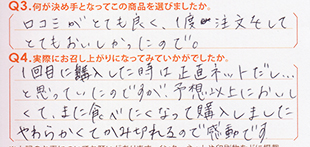 Q3.何が決め手となってこの商品を選びましたか。
口コミがとても良く、1度注文して
とてもおいしかったので。
Q4.実際にお召し上がりになってみていかがでしたか。
1回目に購入した時は正直ネットだし…
と思っていたのですが、予想以上においし
くて、また食べたくなって購入しました
やわらかくてかみ切れるので感動です